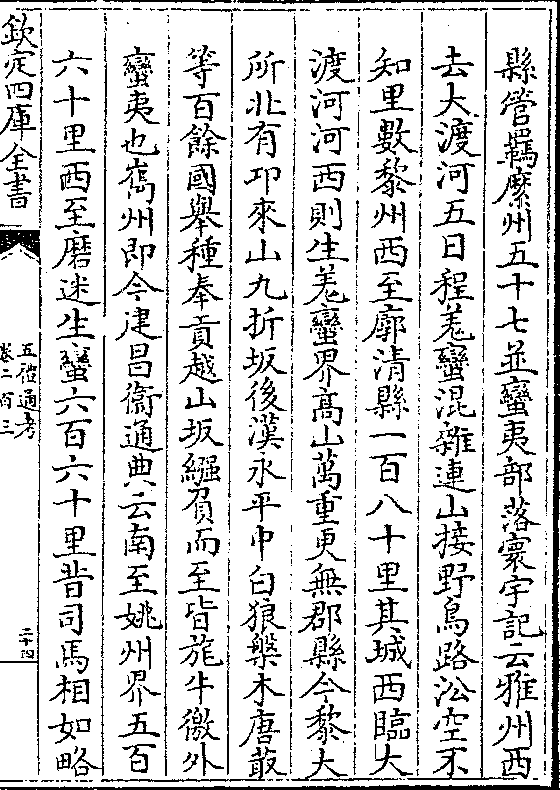 縣管羈縻州五十七並蠻夷部落寰宇記云雅州西
去大渡河五日程羗蠻混雜連山接野鳥路沿空不
知里數黎州西至廓清縣一百八十里其城西臨大
渡河河西則生羗蠻界高山萬重更無郡縣今黎大
所北有卭來山九折坂後漢永平中白狼槃木唐菆
等百餘國舉種奉貢越山坂繦負而至皆旄牛徼外
蠻夷也嶲州即今建昌衞通典云南至姚州界五百
六十里西至磨迷生蠻六百六十里昔司馬相如略
欽定四庫全書
五禮通考
卷二百三
二十四